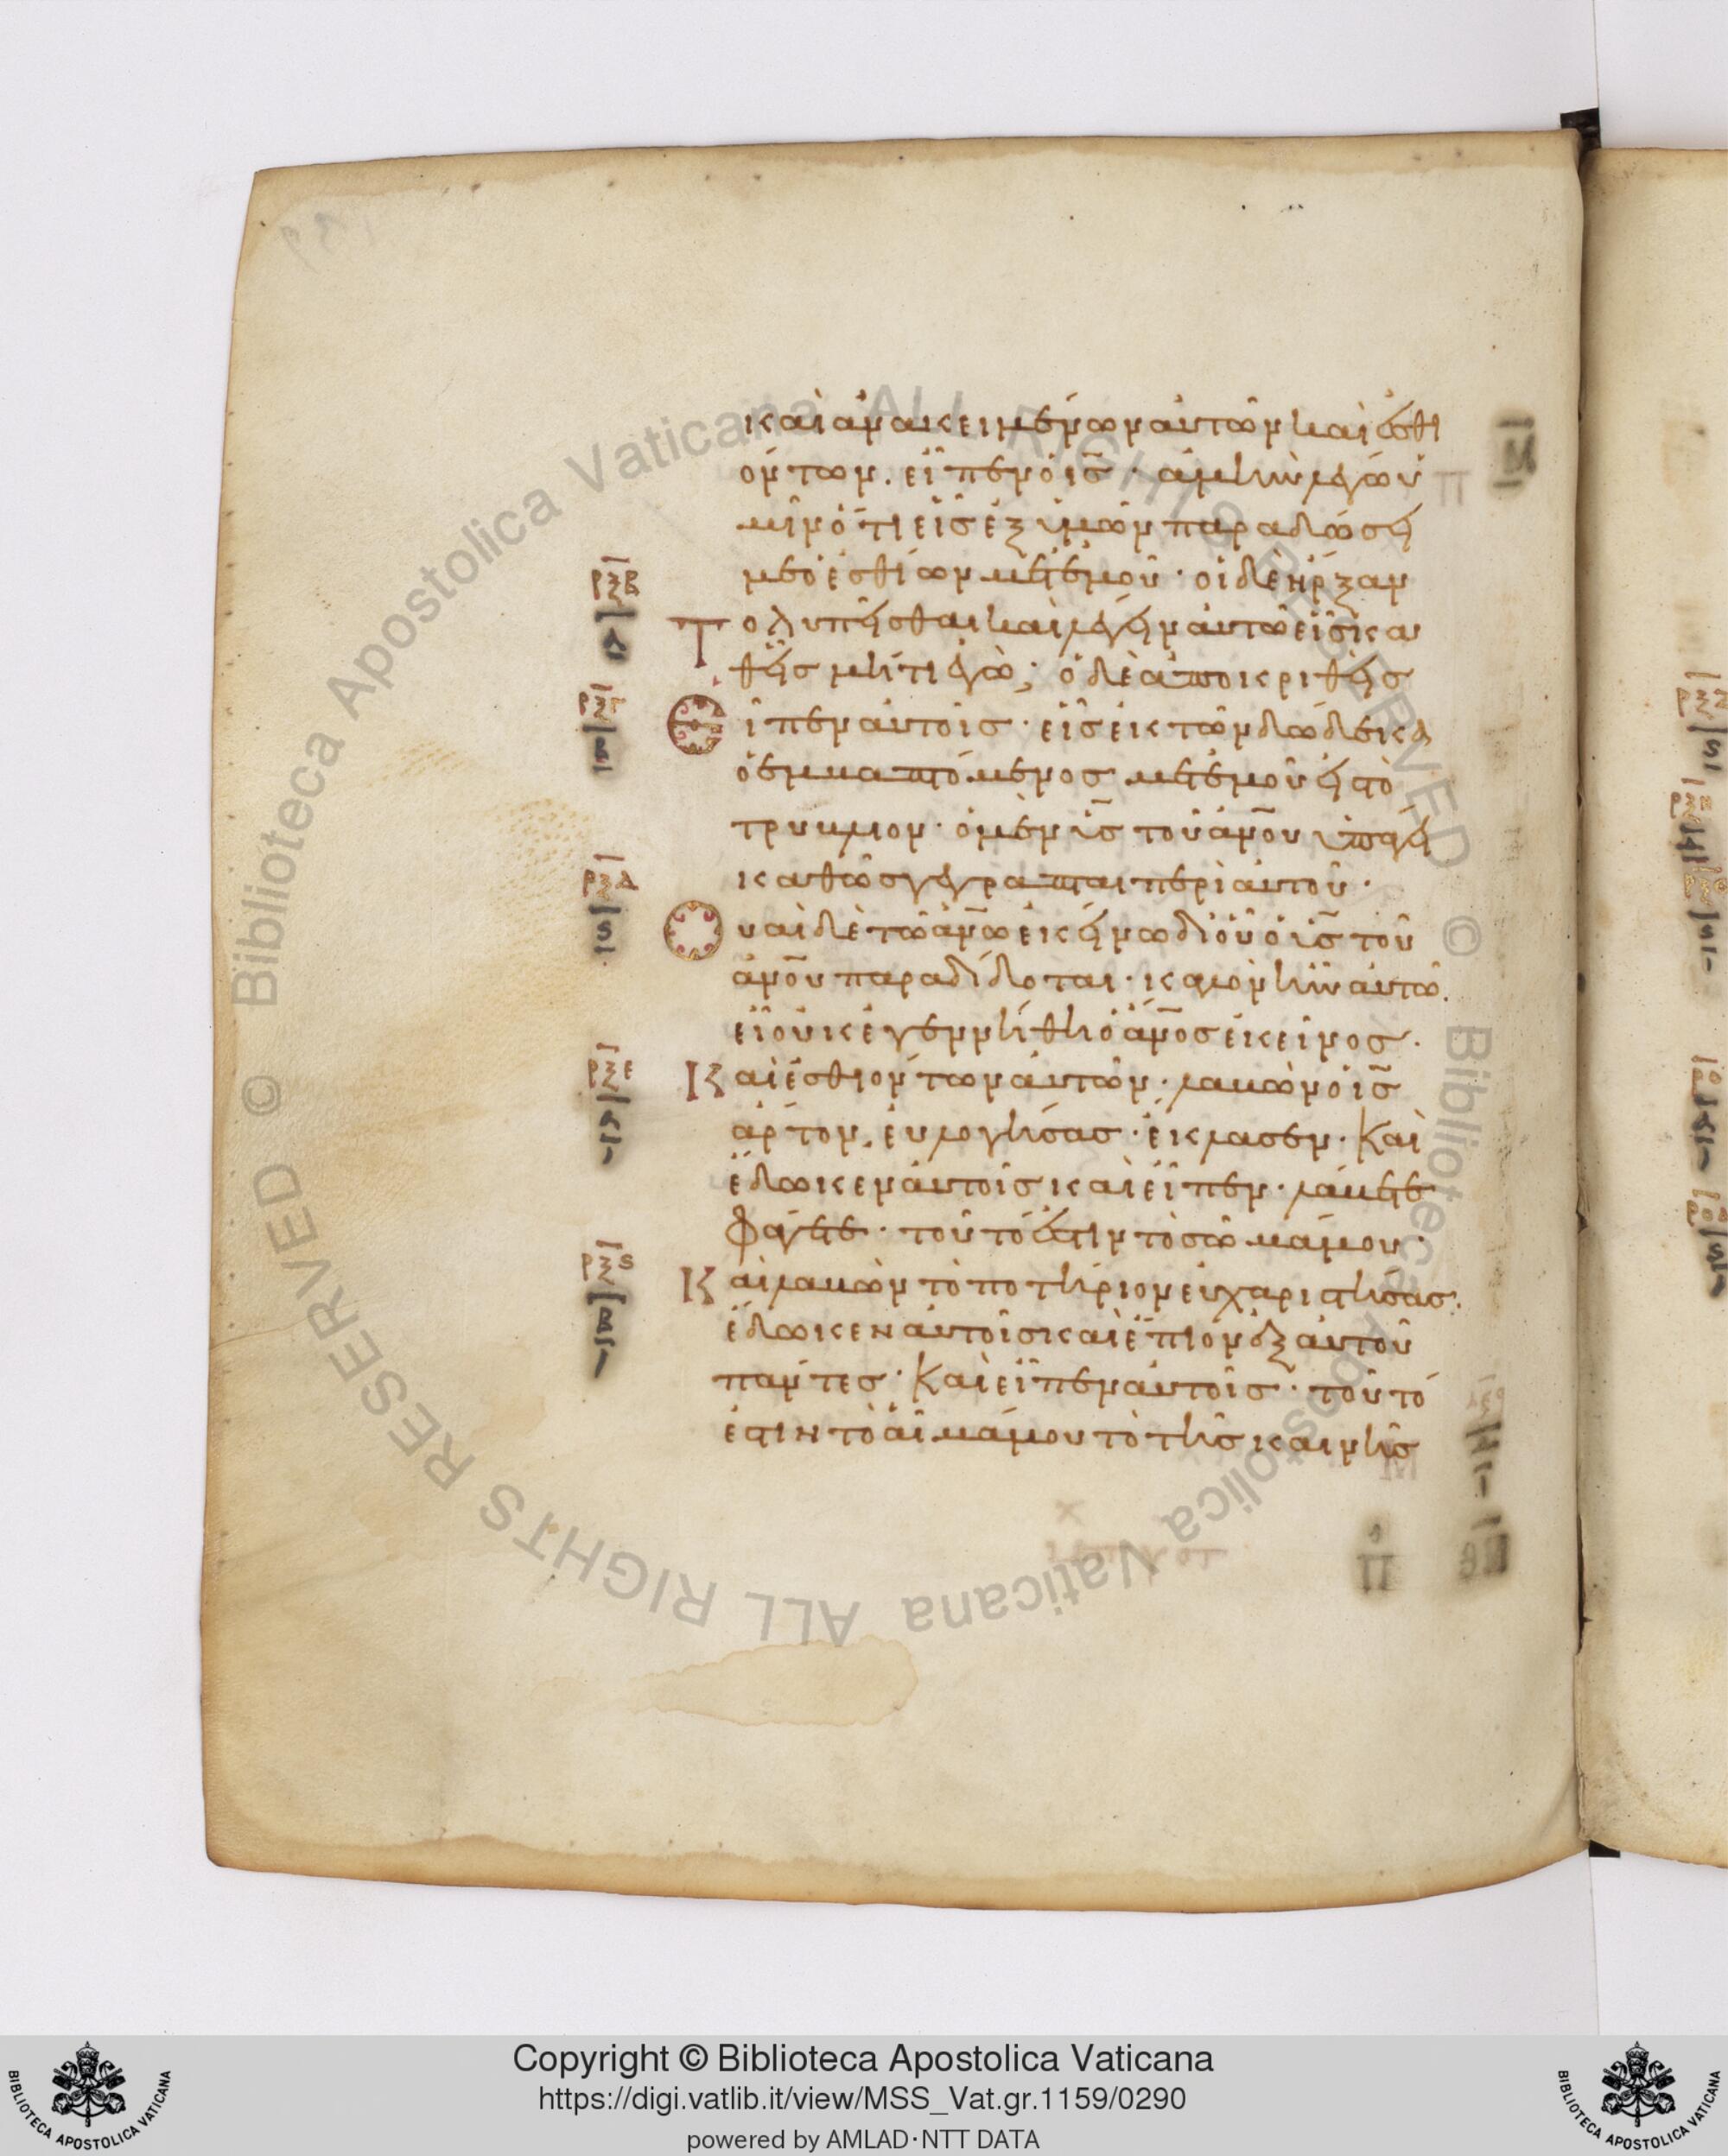 καὶ ἀνακειμένων αὐτῶν καὶ ἐσθι
όντων. εἶπεν ὁ ις̅ · ἀμὴν λέγω ὑ
μῖν ὅτι εἷς ἐξ ὑμῶν παραδώσει
με ὁ ἐσθίων μετ' ἐμοῦ · οἱ δὲ ἤρξαν
ρξΒ Δ
Το λυπεῖσθαι καὶ λέγειν αὐτῶ εἷς κα
θεῖς μήτι ἐγὼ; ὁ δὲ ἀποκριθεὶς
ρξΓ Β
Εἶπεν αὐτοῖς · εἷς ἐκ τῶν δώδεκα
ὁ ἐμβαπτόμενος μετ' ἐμοῦ εἰς τὸ
τρυβλιον · ὁ μὲν υς̅ τοῦ ἀνο̅υ ὑπάγει
καθὼς γέγραπται περὶ αὐτοῦ ·
ρξΔ ς
Οὐαὶ δὲ τῶ ἀνω̅ ἐκείνω δι' οὗ ὁ υς̅ τοῦ
ἀνο̅υ παραδίδοται · καλὸν ἦν αὐτῶ.
εἰ οὐκ ἐγεννήθη ὁ ἀνο̅ς ἐκεῖνος ·
ρξΕ ς
Καὶ ἐσθιόντων αὐτῶν · λαβὼν ὁ ις̅
ἄρτον. εὐλογήσας · ἔκλασεν · Καὶ
ἔδωκεν αὐτοῖς καὶ εἶπεν · λάβετε
φάγετε · τοῦτό ἐστιν τὸ σῶμά μου ·
ρξς Β
Καὶ λαβὼν τὸ ποτήριον εὐχαριστήσας ·
ἔδωκεν αὐτοῖς καὶ ἔπιον ἐξ αὐτοῦ
πάντες · Καὶ εἶπεν αὐτοῖς · τοῦτό
ἐστιν τὸ αἷμά μου τὸ τῆς καινῆς
Vaticana ALL RIGHTS RESERVED © Biblioteca Apostolica Vaticana ALL RIGHTS RESERVED © Biblioteca Apostolica
Copyright © Biblioteca Apostolica Vaticana
https://digi.vatlib.it/view/MSS_Vat.gr.1159/0290
powered by AMLAD·NTT DATA
BIBLIOTECA APOSTOLICA VATICANA
BIBLIOTECA APOSTOLICA VATICANA